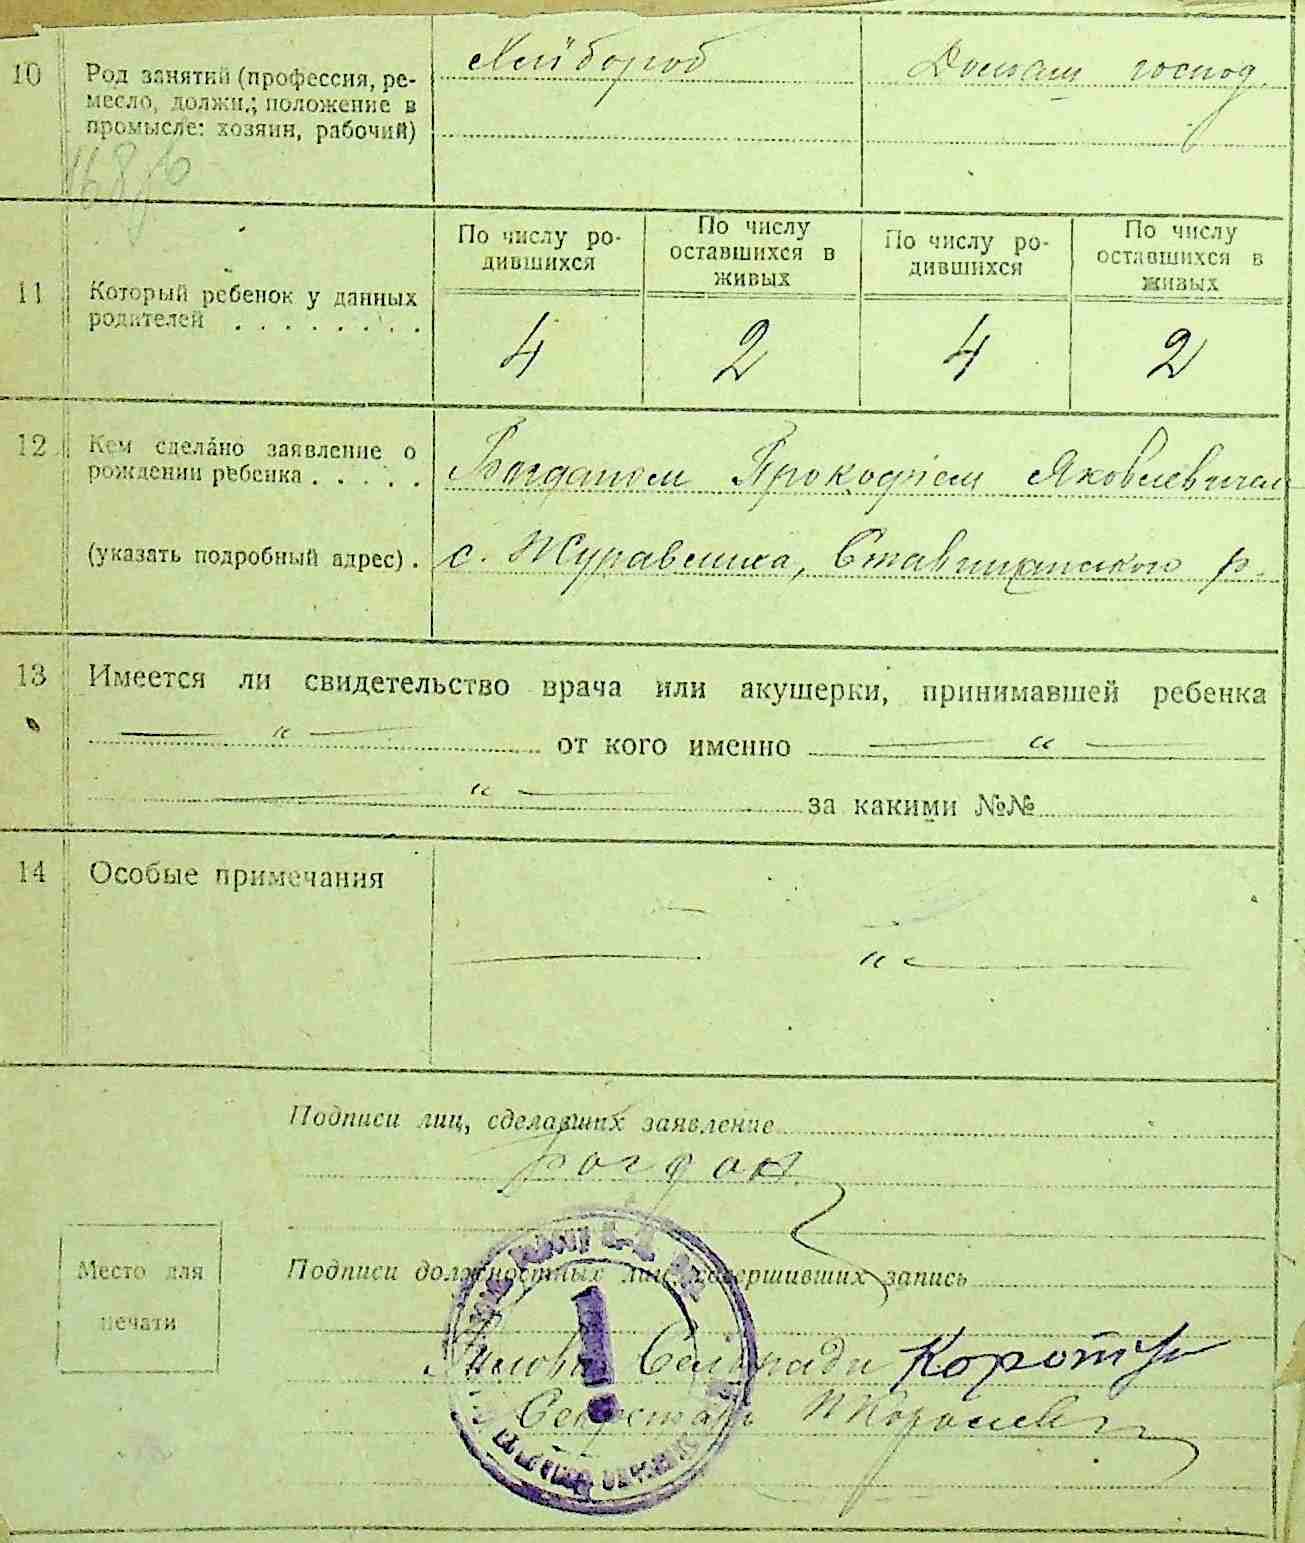 10
Род занятий (профессия, ре-
месло, должн.; положение в
промысле: хозяин, рабочий)
Хлібороб
Домаш господ.
11
Который ребенок у данных
родителей . . . . . . . .
По числу ро-
дившихся
По числу
оставшихся в
живых
По числу ро-
дившихся
По числу
оставшихся в
живых
4 2 4 2
12
Кем сделано заявление о
рождении ребенка . . . . .
Богданом Прокофієм Яковлевичем
(указать подробный адрес) .
с. Журавлиха, Ставищанского р.
13
Имеется ли свидетельство врача или акушерки, принимавшей ребенка
— " — от кого именно — " —
— " — за какими №№
14
Особые примечания
— " —
Подписи лиц, сделавших заявление
Богдан
Место для
печати
Подписи должностных лиц, совершивших запись
Голова Сельради
Секретарь